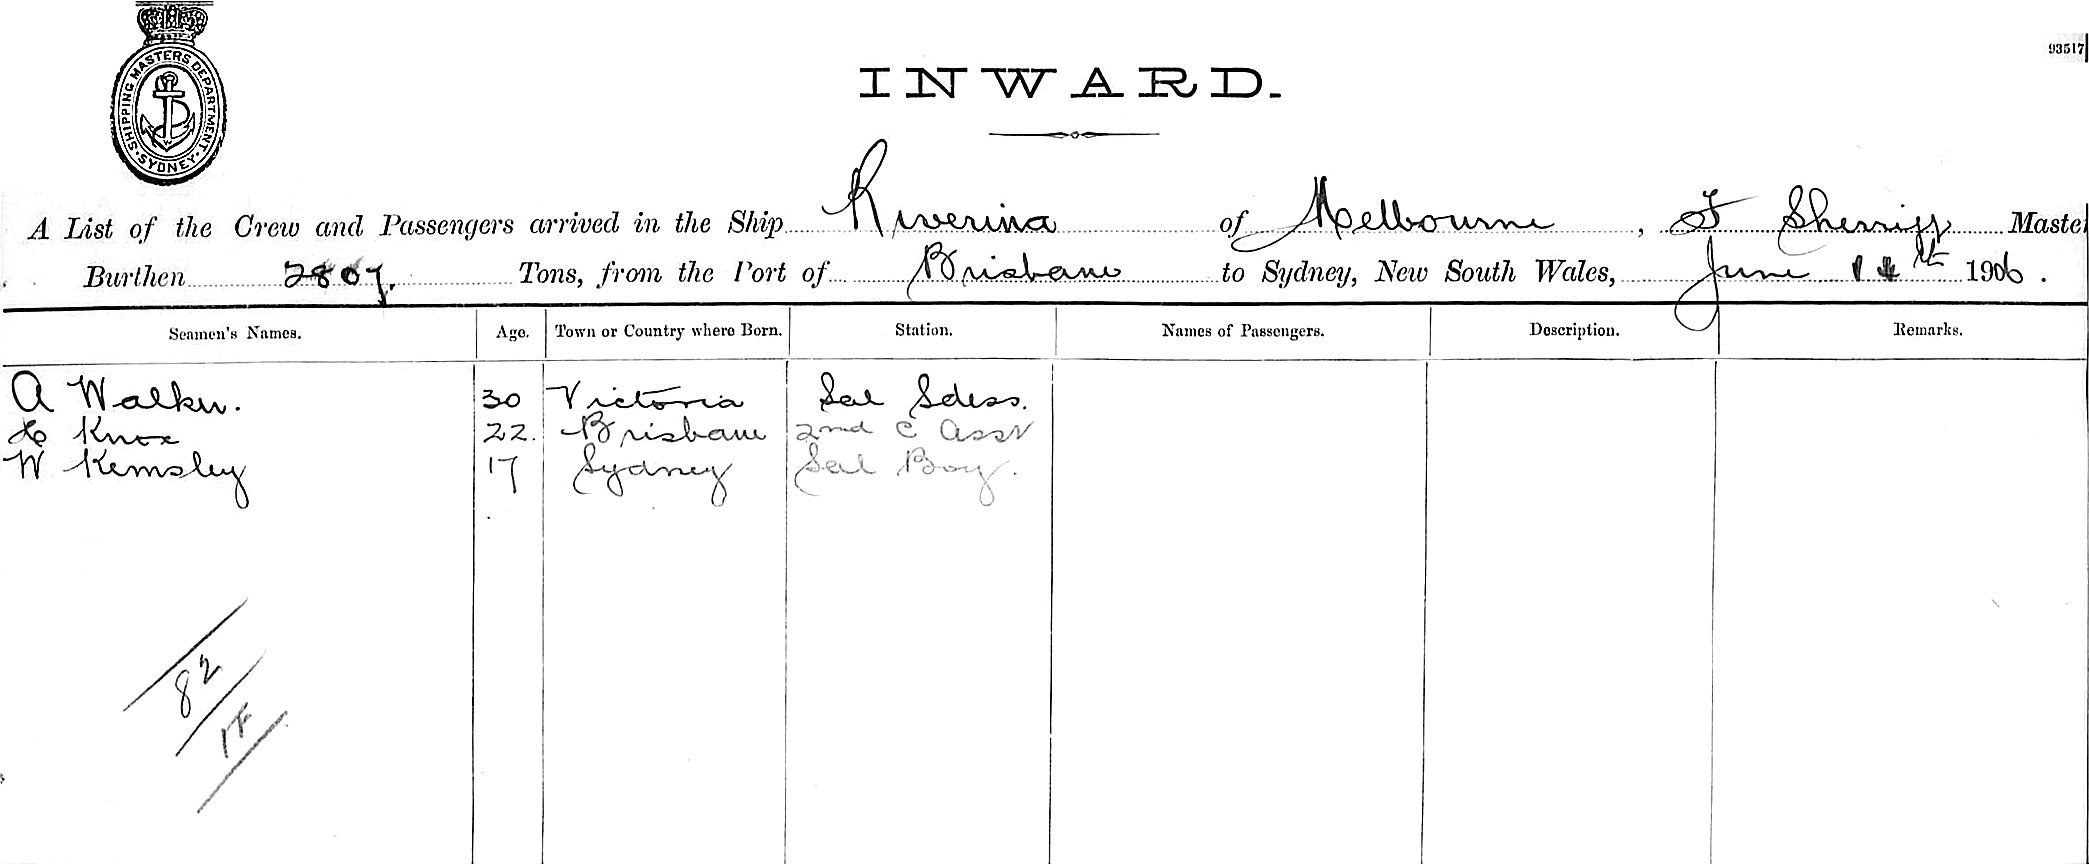 SHIPPING MASTERS DEPARTMENT. SYDNEY.
93517
INWARD.
A List of the Crew and Passengers arrived in the Ship Riverina of Melbourne, J Sherriff Master
Burthen 2807. Tons, from the Port of Brisbane to Sydney, New South Wales, June 14th 1906.
Seamen's Names. Age. Town or Country where Born. Station. Names of Passengers. Description. Remarks.
A Walker. 30 Victoria Sal Sdess.
H Knox 22. Brisbane 2nd C Asst
W Kemsley 17 Sydney Sal Boy.
82